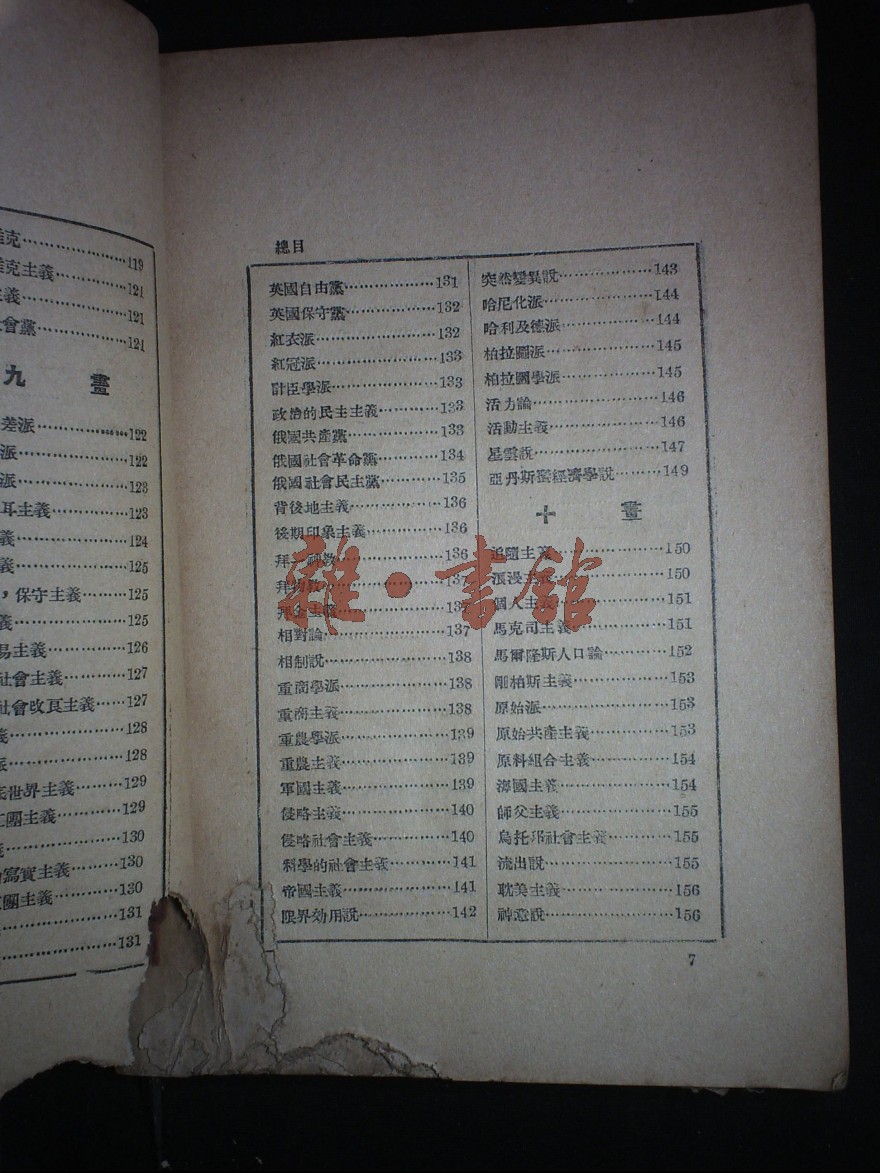 克……119
克主義……121
義……121
會黨……121
九畫
差派……122
派……122
派……123
耳主義……123
義……124
義……125
，保守主義……125
義……125
易主義……126
社會主義……127
社會改良主義……127
義……128
派……128
世界主義……129
工團主義……129
義……130
寫實主義……130
團主義……130
……131
……131
總目
英國自由黨……131
英國保守黨……132
紅衣派……132
紅冠派……133
計臣學派……133
政治的民主主義……133
俄國共產黨……133
俄國社會革命黨……134
俄國社會民主黨……135
背後地主義……136
後期印象主義……136
拜一神教……136
拜物教……137
拜金主義……137
相對論……137
相制說……138
重商學派……138
重商主義……138
重農學派……139
重農主義……139
軍國主義……139
侵略主義……140
侵略社會主義……140
科學的社會主義……141
帝國主義……141
限界効用說……142
突然變異說……143
哈尼化派……144
哈利及德派……144
柏拉圖派……145
柏拉圖學派……145
活力論……146
活動主義……146
星雲說……147
亞丹斯密經濟學說……149
十畫
追隨主義……150
浪漫主義……150
個人主義……151
馬克司主義……151
馬爾隆斯人口論……152
剛柏斯主義……153
原始派……153
原始共產主義……153
原料組合主義……154
海國主義……154
師父主義……155
烏托邦社會主義……155
流出說……155
耽美主義……156
神意說……156
7
雜·書館